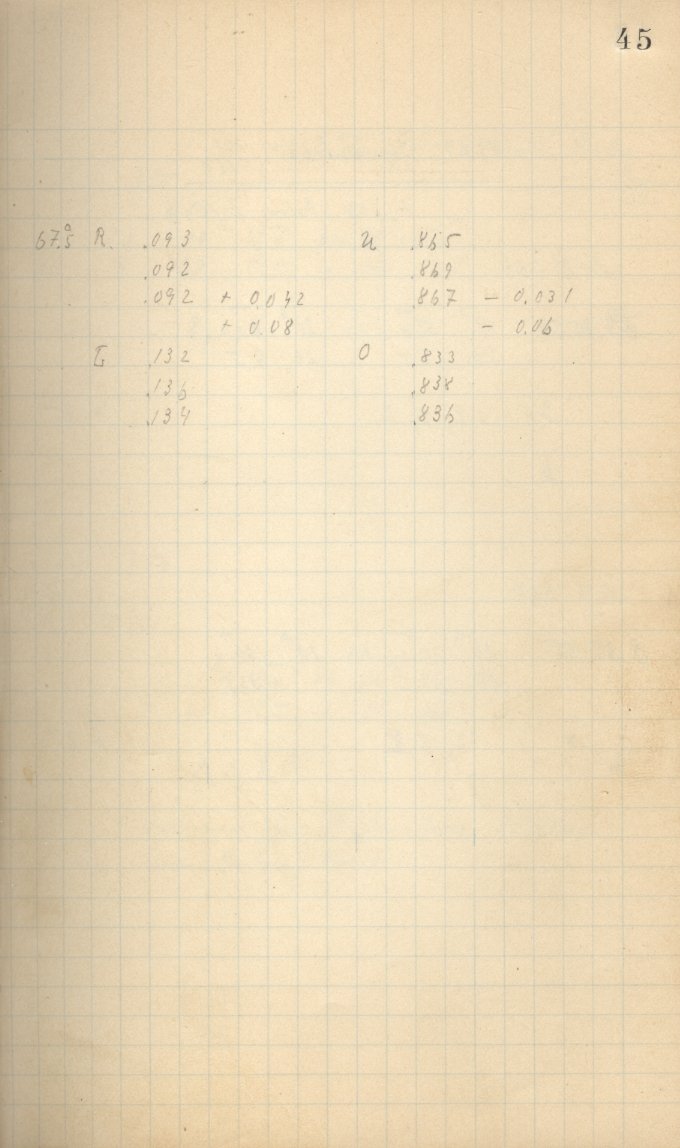 45
67.5° R .093 U .865
.092 .869
.092 + 0.042 .867 - 0.031
+ 0.08 - 0.06
L .132 O .833
.136 .838
.134 .836